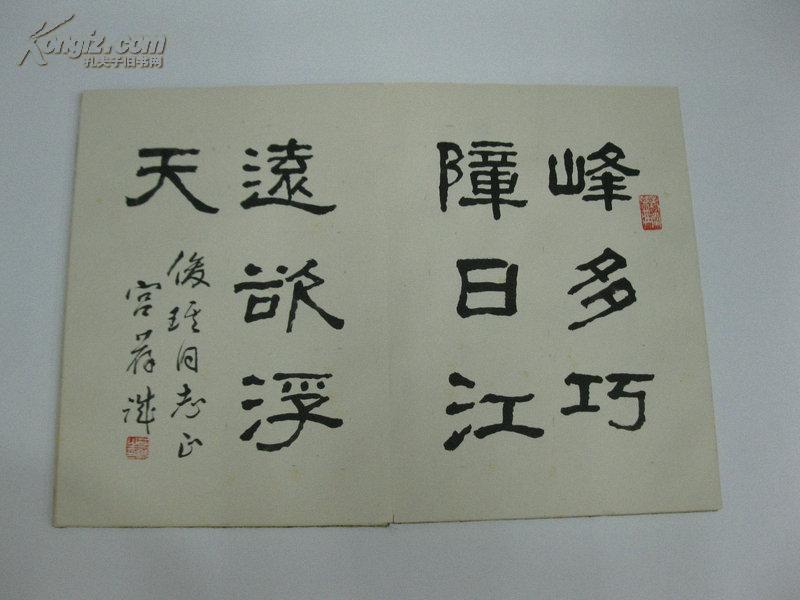 峰多巧
障日江
遠欲浮
天
俊珄同志正
宫葆诚
Kongfz.com
孔夫子旧书网